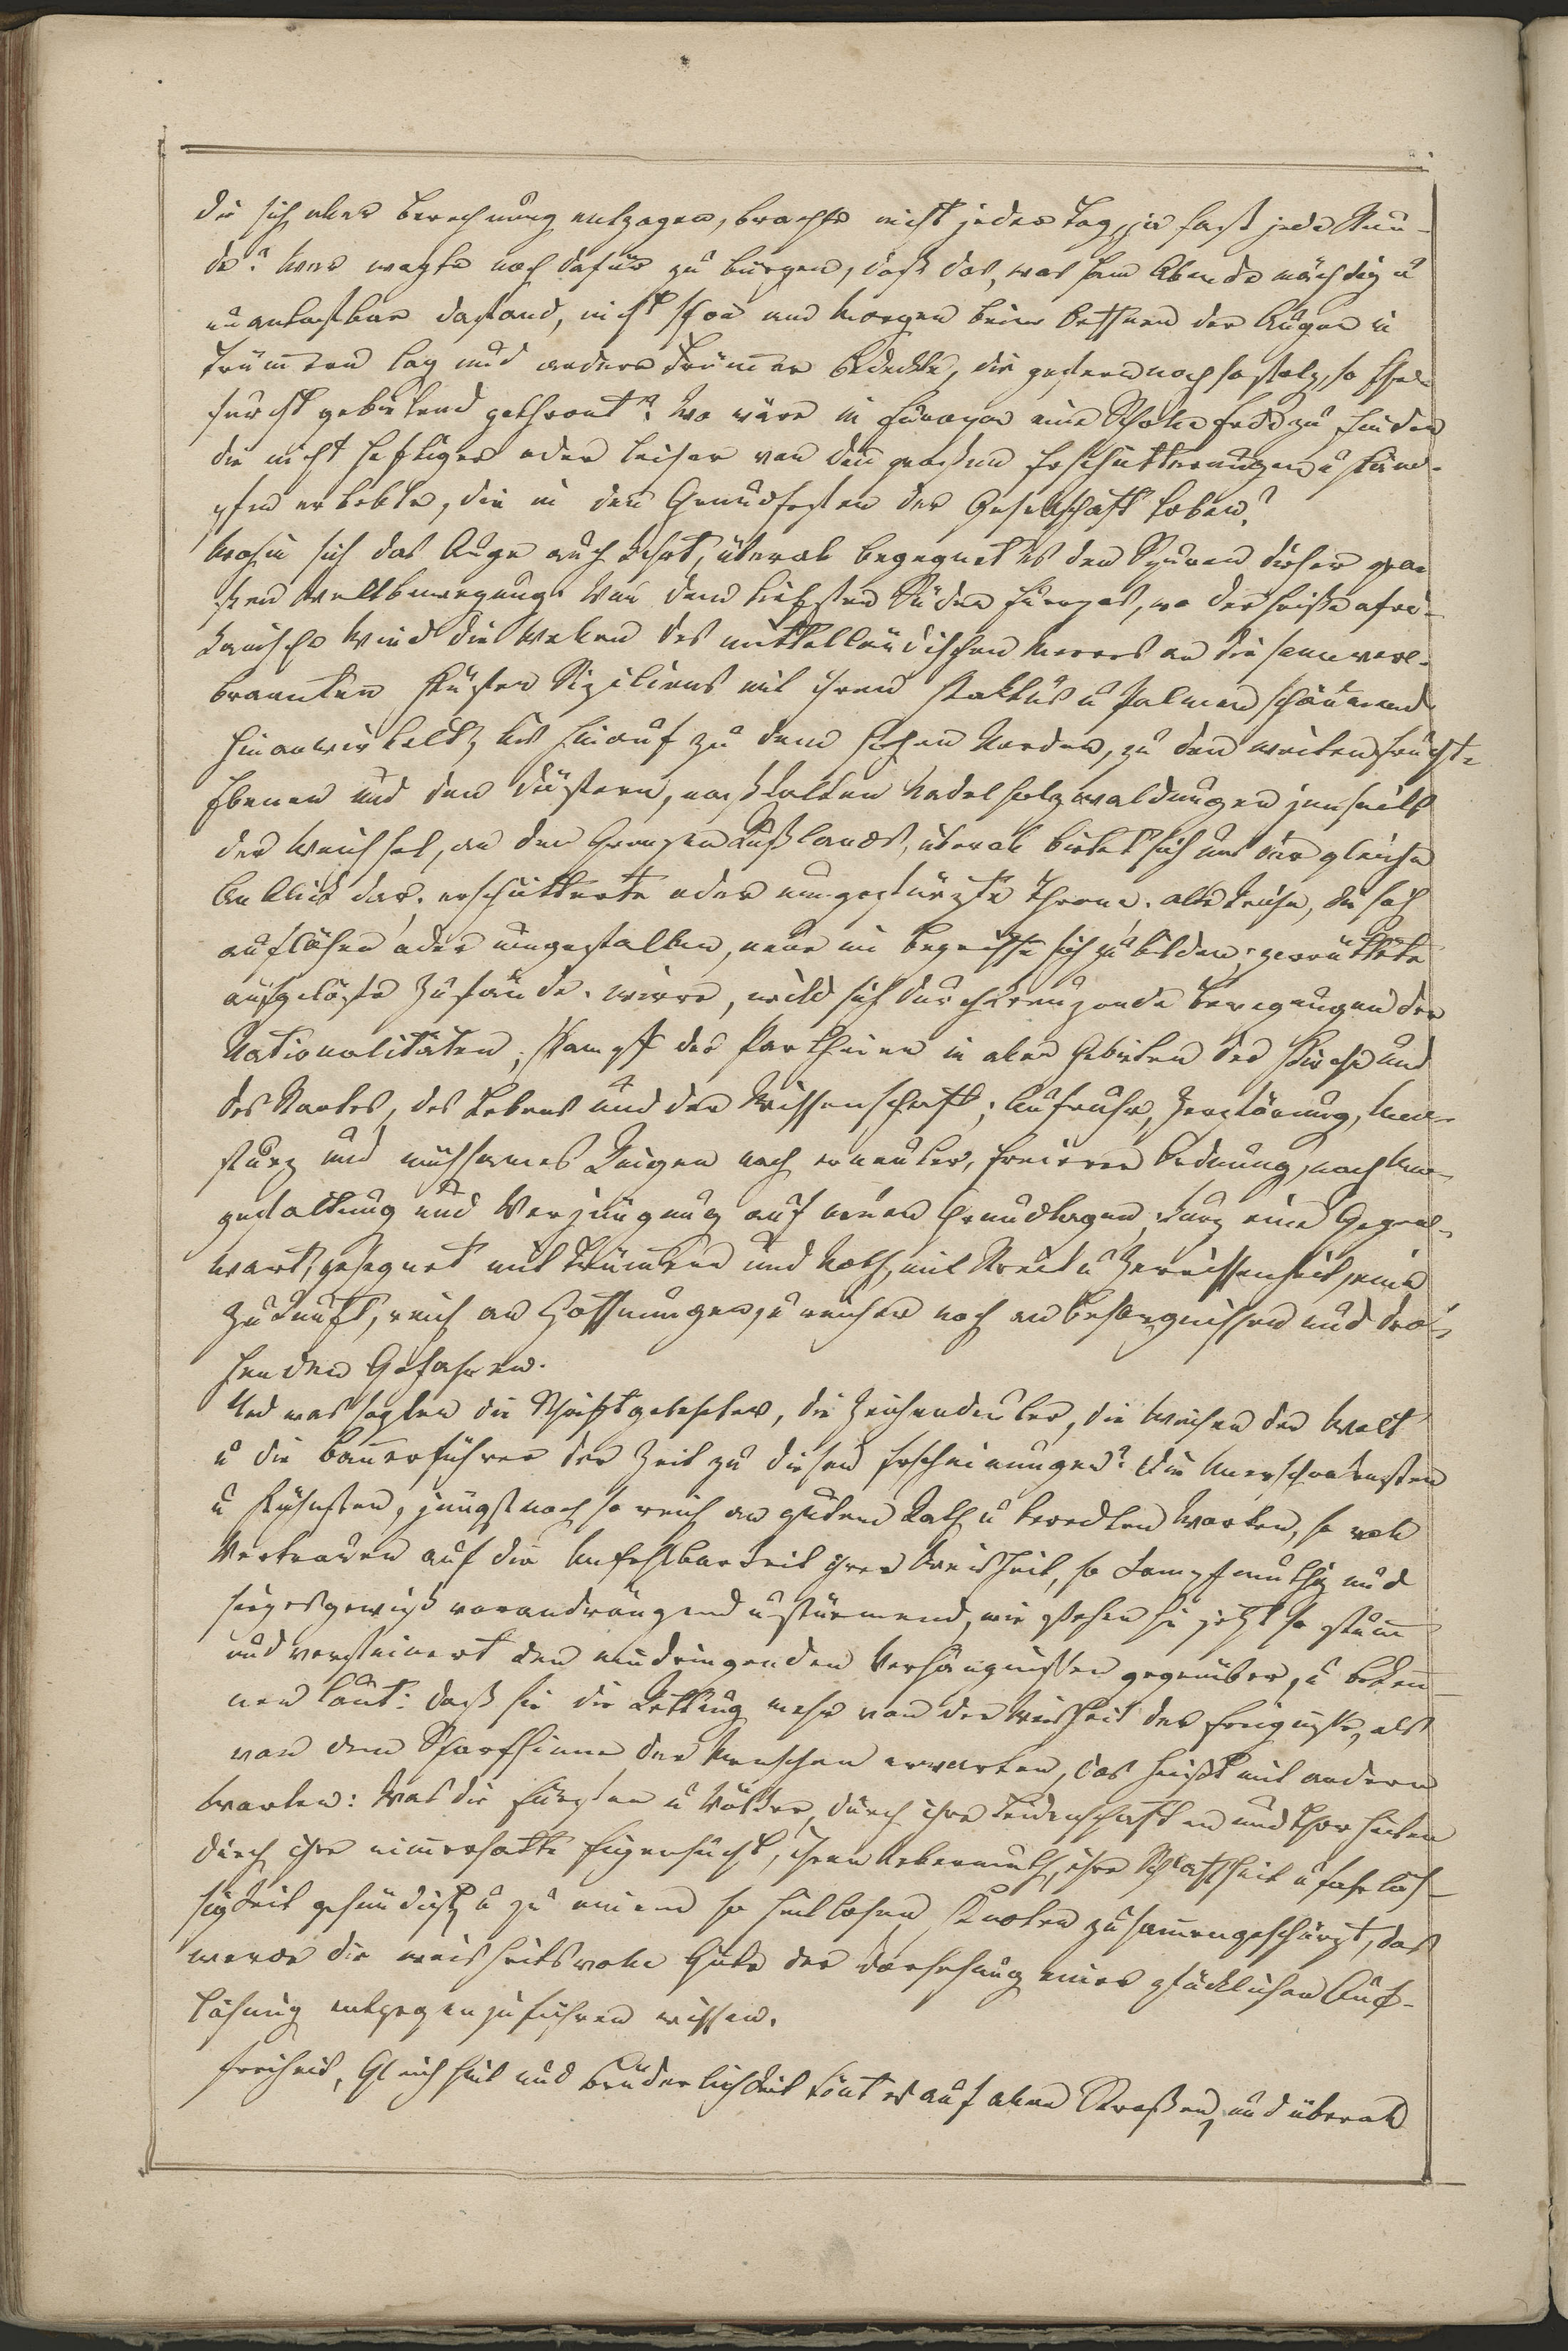 die sich aller Berechnung entzogen, brachte nicht jeder Tag, ja fast jede Stun-
de? Wer wagte noch dafür zu bürgen, daß das, was am Abende mächtig u
unantastbar dastand, nicht schon am Morgen beim Oeffnen der Augen in
Trümmern lag und andere Trümmer bedeckte, die gestern noch so stolz, so Ehr-
furcht gebietend gethront? Wo wäre in Europa eine Scholle Erde zu finden
die nicht heftiger oder leiser von den großen Erschütterungen u Käm-
pfen erbebte, die in den Grundfesten der Gesellschaft toben?
Wohin sich das Auge auch kehrt, überall begegnet es den Spuren dieser gro-
ßen Weltbewegung. Von dem tiefsten Süden Europas, wo der heiße afri-
kanische Wind die Wellen des mittelländischen Meeres an die sonnver-
brannten Küsten Siziliens mit ihren Kaktus u Palmen schäumend
hinanwirbelt, bis hinauf zu dem hohen Norden, zu den weiten feucht-
Ebenen und den düstern, naßkalten Nadelholzwaldungen jenseits
der Weichsel, an den Grenzen Rußlands, überall bietet sich uns der gleiche
Anblick dar: erschütterte oder umgestürzte Throne; alte Reiche, die sich
auflösen oder umgestalten, neue im Begriffe sich zu bilden; zerrüttete
aufgelöste Zustände; wirre, wild sich durchkreuzende Bewegungen der
Nationalitäten; Kampf der Partheien in allen Gebieten der Kirche und
des Staates, des Lebens und der Wissenschaft; Aufruhr, Zerstörung, Um-
sturz und mühsames Ringen nach erneuter, freierer Ordnung, nach Um-
gestaltung und Verjüngung auf neuen Grundlagen, kurz eine Gegen-
wart, gesegnet mit Trümmern und Noth, mit Streit u Zerrissenheit, eine
Zukunft, reich an Hoffnungen, u reicher noch an Besorgnissen und dro-
henden Gefahren.
Und was sagten die Schriftgelehrten, die Zeichendeuter, die Weisen der Welt
u die Bannerführer der Zeit zu diesen Erscheinungen? Die Unerschrockensten
u Kühnsten, jüngst noch so reich an gutem Rath u beredten Worten, so voll
Vertrauen auf die Unfehlbarkeit ihrer Weisheit, so kampfmuthig und
siegesgewiß vorandrängend u stürmend, wie stehen sie jetzt so stumm
und versteinert den eindringenden Verhängnissen gegenüber, u beken-
nen laut: daß sie die Rettung mehr von der Weisheit der Ereignisse, als
von dem Scharfsinne der Menschen erwarten, das heißt mit andern
Worten: Was die Fürsten u Völker, durch ihre Leidenschaften und Thorheiten
durch ihre nimmersatte Eigensucht, ihren Uebermuth, ihre Schlaffheit u Fahrläs-
sigkeit gesündigt, u zu einem so heillosen Knoten zusammengeschürzt, das
werde die weisheitsvolle Güte der Vorsehung einer glücklichen Auf-
lösung entgegenzuführen wissen.
Freiheit, Gleichheit und Brüderlichkeit tönt es auf allen Straßen, und überall